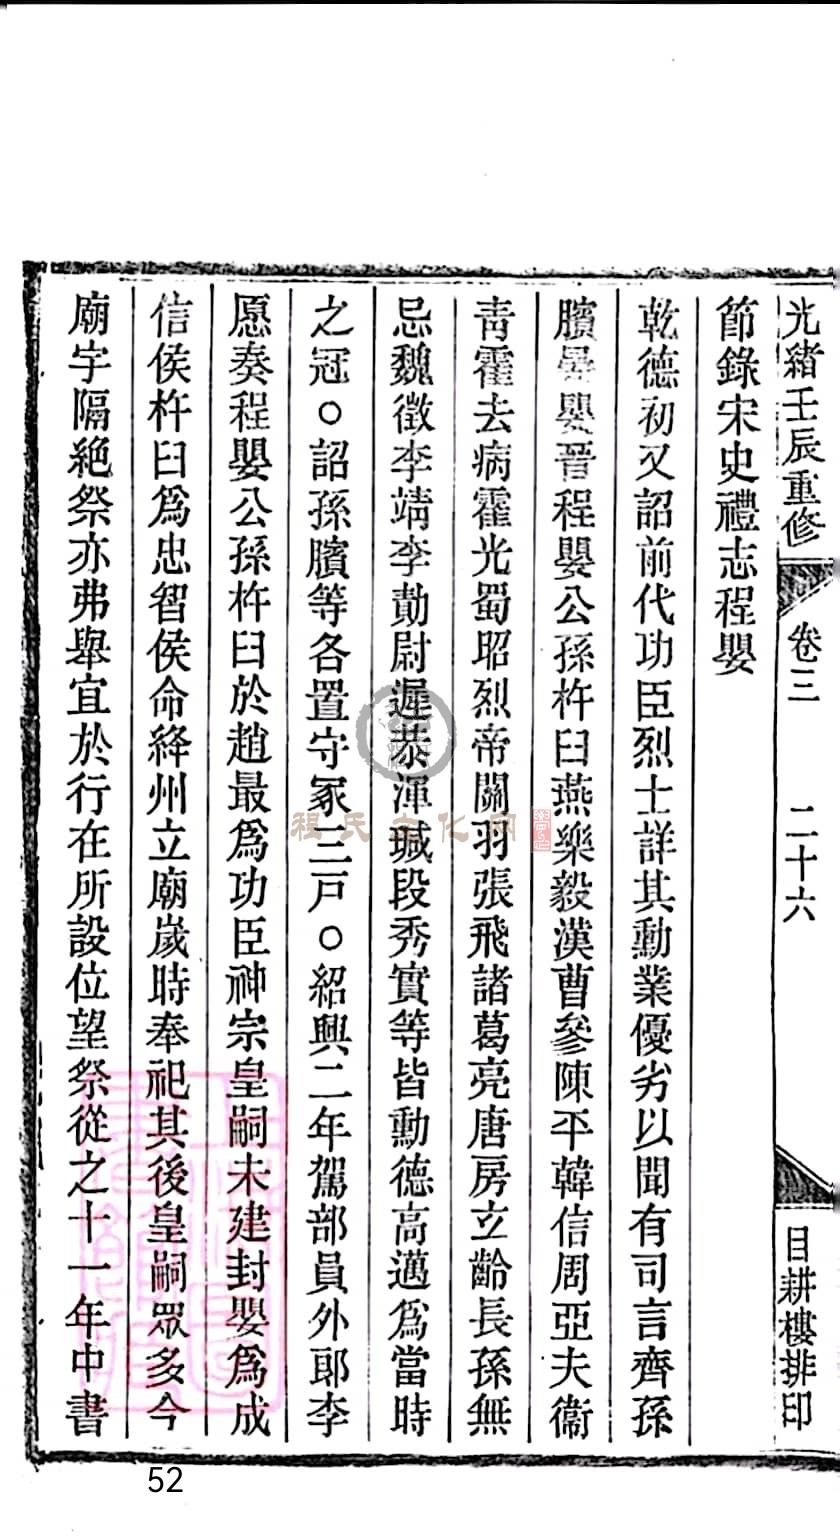 光緒壬辰重修 卷三 二十六 目耕樓排印
節錄宋史禮志程嬰
乾德初又詔前代功臣烈士詳其勳業優劣以聞有司言齊孫
臏晏嬰晉程嬰公孫杵臼燕樂毅漢曹參陳平韓信周亞夫衞
青霍去病霍光蜀昭烈帝關羽張飛諸葛亮唐房立齡長孫無
忌魏徵李靖李勣尉遲恭渾瑊段秀實等皆勳德高邁爲當時
之冠○詔孫臏等各置守冢三戸○紹興二年駕部員外郎李
愿奏程嬰公孫杵臼於趙最爲功臣神宗皇嗣未建封嬰爲成
信侯杵臼爲忠智侯命絳州立廟歲時奉祀其後皇嗣眾多今
廟宇隔絶祭亦弗舉宜於行在所設位望祭從之十一年中書
程氏文化网
52